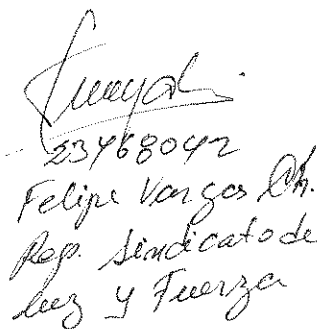 23468042
Felipe Vargas Ch.
Rep. Sindicato de
luz y Fuerza